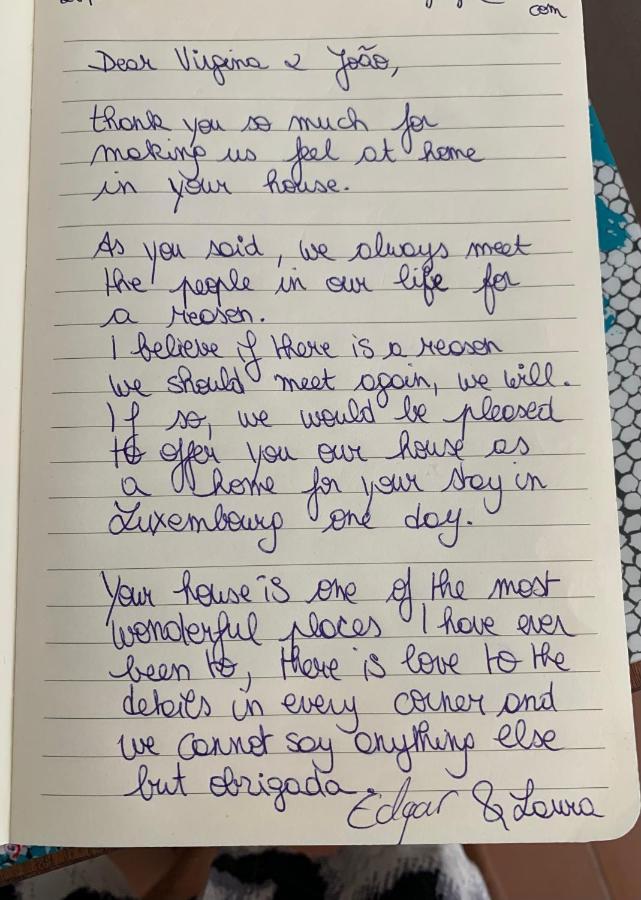 com
Dear Virgina & João,
thank you so much for
making us feel at home
in your house.
As you said, we always meet
the people in our life for
a reason.
I believe if there is a reason
we should meet again, we will.
If so, we would be pleased
to offer you our house as
a home for your stay in
Luxembourg one day.
Your house is one of the most
wonderful places I have ever
been to, there is love to the
details in every corner and
we cannot say anything else
but obrigada.
Edgar & Laura